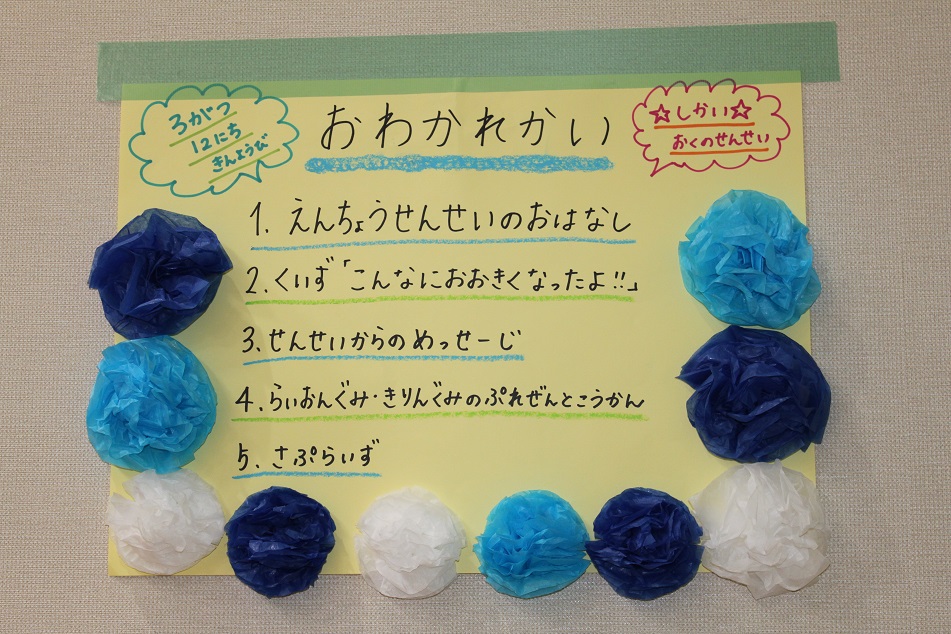 3がつ
12にち
きんようび
おわかれかい
☆しかい☆
おくのせんせい
1. えんちょうせんせいのおはなし
2. くいず「こんなにおおきくなったよ!!」
3. せんせいからのめっせーじ
4. らいおんぐみ・きりんぐみのぷれぜんとこうかん
5. さぷらいず